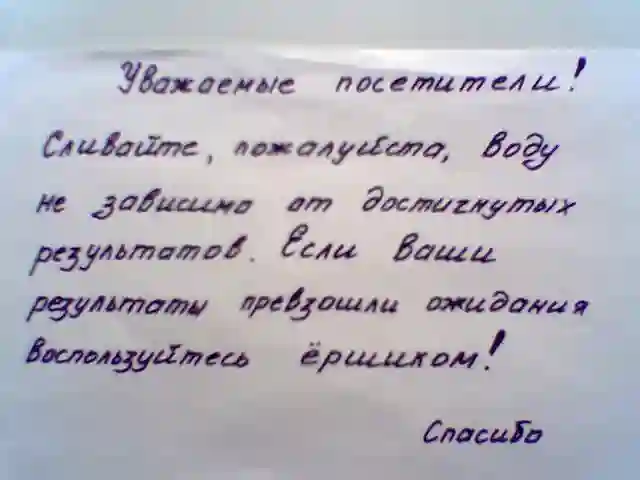 Уважаемые посетители!
Сливайте, пожалуйста, воду
не зависимо от достигнутых
результатов. Если Ваши
результаты превзошли ожидания
воспользуйтесь ёршиком!
Спасибо